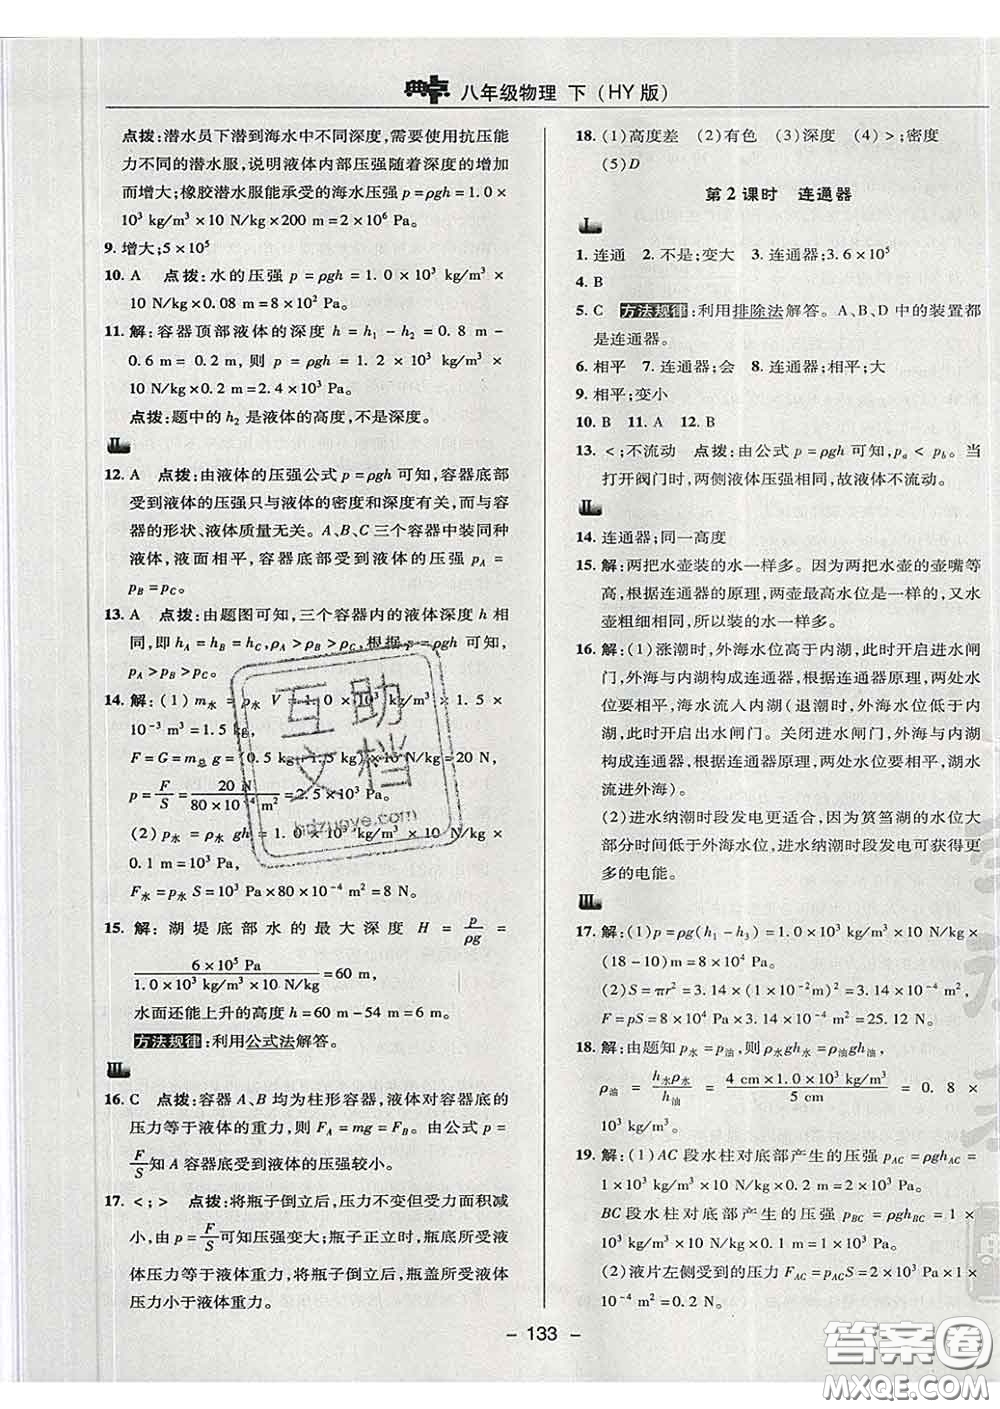 典中点 八年级物理 下(HY版)
点拨:潜水员下潜到海水中不同深度,需要使用抗压能
力不同的潜水服,说明液体内部压强随着深度的增加
而增大;橡胶潜水服能承受的海水压强 p=ρgh=1.0×
10³ kg/m³×10 N/kg×200 m=2×10⁶ Pa.
9. 增大;5×10⁵
10. A 点拨:水的压强 p=ρgh=1.0×10³ kg/m³×
10 N/kg×0.08 m=8×10² Pa.
11. 解:容器顶部液体的深度 h=h₁-h₂=0.8 m-
0.6 m=0.2 m,则 p=ρgh=1.2×10³ kg/m³×
10 N/kg×0.2 m=2.4×10³ Pa.
点拨:题中的 h₂ 是液体的高度,不是深度。
Ⅱ
12. A 点拨:由液体的压强公式 p=ρgh 可知,容器底部
受到液体的压强只与液体的密度和深度有关,而与容
器的形状、液体质量无关。A、B、C 三个容器中装同种
液体,液面相平,容器底部受到液体的压强 p_A=
p_B=p_C。
13. A 点拨:由题图可知,三个容器内的液体深度 h 相
同,即 h_A=h_B=h_C,ρ_A>ρ_B>ρ_C,根据 p=ρgh 可知,
p_A>p_B>p_C。
14. 解:(1) m水=ρ水 V=1.0×10³ kg/m³×1.5×
10⁻³ m³=1.5 kg,
F=G=m总 g=(0.5 kg+1.5 kg)×10 N/kg=20 N,
p=F/S=20 N/(80×10⁻⁴ m²)=2.5×10³ Pa.
(2) p水=ρ水 gh=1.0×10³ kg/m³×10 N/kg×
0.1 m=10³ Pa,
F水=p水 S=10³ Pa×80×10⁻⁴ m²=8 N。
15. 解:湖堤底部水的最大深度 H=p/(ρg)=
6×10⁵ Pa/(1.0×10³ kg/m³×10 N/kg)=60 m,
水面还能上升的高度 h=60 m-54 m=6 m。
方法规律:利用公式法解答。
Ⅲ
16. C 点拨:容器 A、B 均为柱形容器,液体对容器底的
压力等于液体的重力,则 F_A=mg=F_B。由公式 p=
F/S 知 A 容器底受到液体的压强较小。
17. <;> 点拨:将瓶子倒立后,压力不变但受力面积减
小,由 p=F/S 可知压强变大;瓶子正立时,瓶底所受液
体压力等于液体重力,将瓶子倒立后,瓶盖所受液体
压力小于液体重力。
18. (1)高度差 (2)有色 (3)深度 (4)>;密度
(5)D
第 2 课时 连通器
Ⅰ
1. 连通 2. 不是;变大 3. 连通器;3.6×10⁵
4. B
5. C 方法规律:利用排除法解答。A、B、D 中的装置都
是连通器。
6. 相平 7. 连通器;会 8. 连通器;相平;大
9. 相平;变小
10. B 11. A 12. B
13. <;不流动 点拨:由公式 p=ρgh 可知,p_a<p_b。当
打开阀门时,两侧液体压强相同,故液体不流动。
Ⅱ
14. 连通器;同一高度
15. 解:两把水壶装的水一样多。因为两把水壶的壶嘴等
高,根据连通器的原理,两壶最高水位是一样的,又水
壶粗细相同,所以装的水一样多。
16. 解:(1)涨潮时,外海水位高于内湖,此时开启进水闸
门,外海与内湖构成连通器,根据连通器原理,两处水
位要相平,海水流入内湖(退潮时,外海水位低于内
湖,此时开启出水闸门。关闭进水闸门,外海与内湖
构成连通器,根据连通器原理,两处水位要相平,湖水
流进外海)。
(2)进水纳潮时段发电更适合,因为筼筜湖的水位大
部分时间低于外海水位,进水纳潮时段发电可获得更
多的电能。
Ⅲ
17. 解:(1)p=ρg(h₁-h₃)=1.0×10³ kg/m³×10 N/kg×
(18-10)m=8×10⁴ Pa.
(2)S=πr²=3.14×(1×10⁻²m)²=3.14×10⁻⁴ m²,
F=pS=8×10⁴ Pa×3.14×10⁻⁴ m²=25.12 N。
18. 解:由题知 p水=p油,则 ρ水gh水=ρ油gh油,
ρ油=h水ρ水/h油=4 cm×1.0×10³ kg/m³/5 cm=0.8×
10³ kg/m³。
19. 解:(1)AC 段水柱对底部产生的压强 p_AC=ρgh_AC=
1×10³ kg/m³×10 N/kg×0.2 m=2×10³ Pa,
BC段水柱对底部产生的压强 p_BC=ρgh_BC=1×
10³ kg/m³×10 N/kg×0.1 m=1×10³ Pa.
(2)液片左侧受到的压力 F_AC=p_ACS=2×10³ Pa×1×
10⁻⁴ m²=0.2 N。
- 133 -
互助
文档
hdzuoye.com
答案圈
MXQE.COM